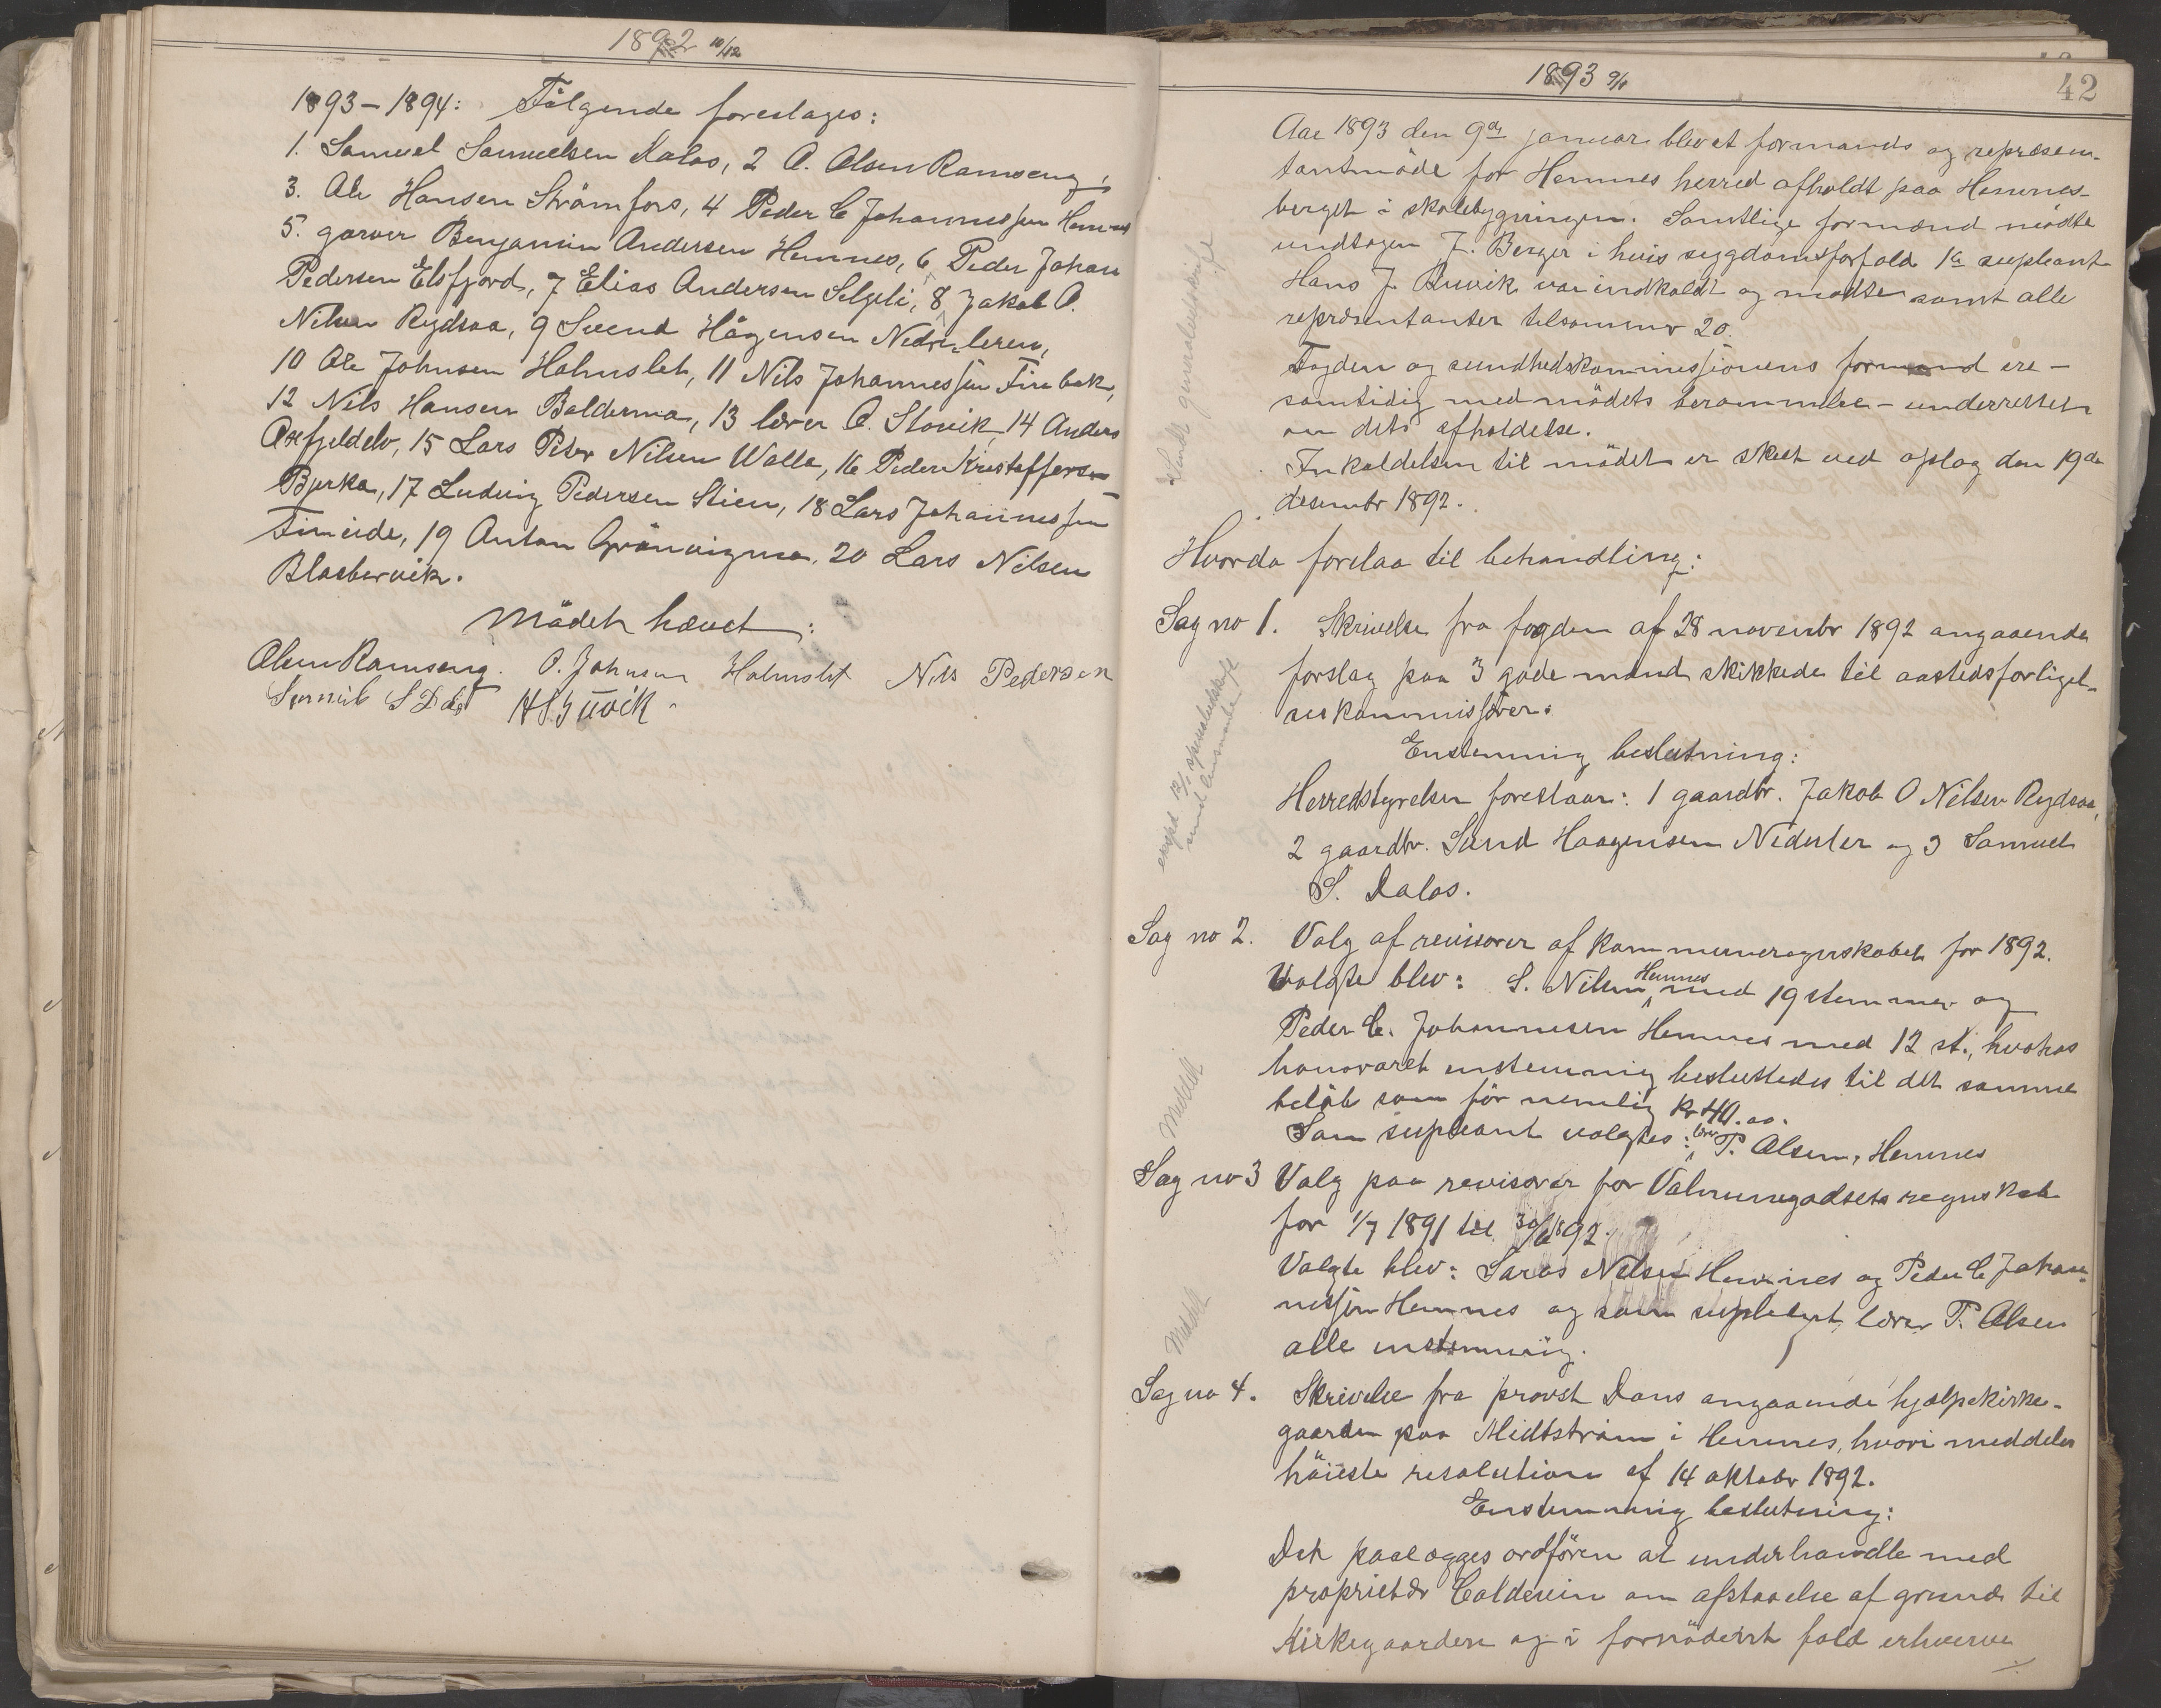 1892 10/12
1893-1894: Følgende foreslages:
1. Samuel Samuelsen Dalos, 2 O. Olsen Ramseng,
3. Ole Hansen Strømfors, 4 Peder C Johannessen Hemnes
5. garver Benjamin Andersen Hemnes, 6 Peder Johan
Pedersen Elsfjord, 7 Elias Andersen Selfjeli, 8 Jakob O.
Nilsen Rydsaa, 9 Svend Hågensen Nedreleren,
10 Ole Johnsen Holmslet, 11 Nils Johannessen Finbak,
12 Nils Hansen Balderma, 13 lærer O. Slovik, 14 Anders
Oxfjeldelv, 15 Lars Peter Nilsen Walla, 16 Peder Kristoffersen
Bjerka, 17 Ludvig Pedersen Stien, 18 Lars Johannessen
Fineide, 19 Anton Grönvigmo, 20 Lars Nilsen
Blaabærvik.
Mödet hævet:
Olsen Ramseng. O. Johnsen Holmslet Nils Pedersen
HJBuvik
1893 9/1
42
Aar 1893 den 9de januar blev et formands og represen-
tantmöde for Hemnes herred afholdt paa Hemnes-
berget i skolebygningen. Samtlige formænd mödte
undtagen J. Berger i hvis sygdomsforfald 1ste supleant
Hans J. Buvik var indkaldt og mödte samt alle
repræsentanter tilsammen 20.
Fogden og sundhedskommissionens formand ere -
samtidig med mödets berammelse - underrettet
om dets afholdelse.
Inkaldelsen til mödet er skeet ved opslag den 19de
desembr 1892.
Hvorda forelaa til behandling:
Sag no 1. Skrivelse fra fogden af 28 novenbr 1892 angaaende
forslag paa 3 gode mænd skikkede til aastedsforligel-
seskommissærer.
Enstemmig beslutning:
Herredstyrelsen foreslaar: 1 gaardbr. Jakob O Nilsen Rydsaa,
2 gaardbr. Svend Haagensen Nedreler og 3 Samuel
S. Dalos.
Sag no 2. Valg af revisorer af kommuneregnskabet for 1892.
Valgte blev: S. Nilsen Hemnes med 19 stemmer og
Peder C. Johannesen Hemnes med 12 st., hvohos
honoraret enstemmig besluttedes til det samme
belöb som för nemlig Kr 40.00.
Som supleant valgtes: lærer T. Olsen, Hemnes
Meddelt
Sag no 3 Valg paa revisorer for Valmunegodsets regnskab
for 1/7 1891 til 30/6 1892.
Valgte blev: Søras Nilsen Hemnes og Peder C Johan-
nessen Hemnes og som supleant lærer T. Olsen
alle enstemmig.
Meddelt
Sag no 4. Skrivelse fra provst Dons angaaende hjælpekirke-
gaarden paa Midtström i Hemnes, hvori meddeles
höieste resolution af 14 oktobr 1892.
Enstemmig beslutning:
Det paalægges ordfören at underhandle med
proprietær Coldevin om afstaaelse af grund til
Kirkegaarden og i fornödent fald erhverve